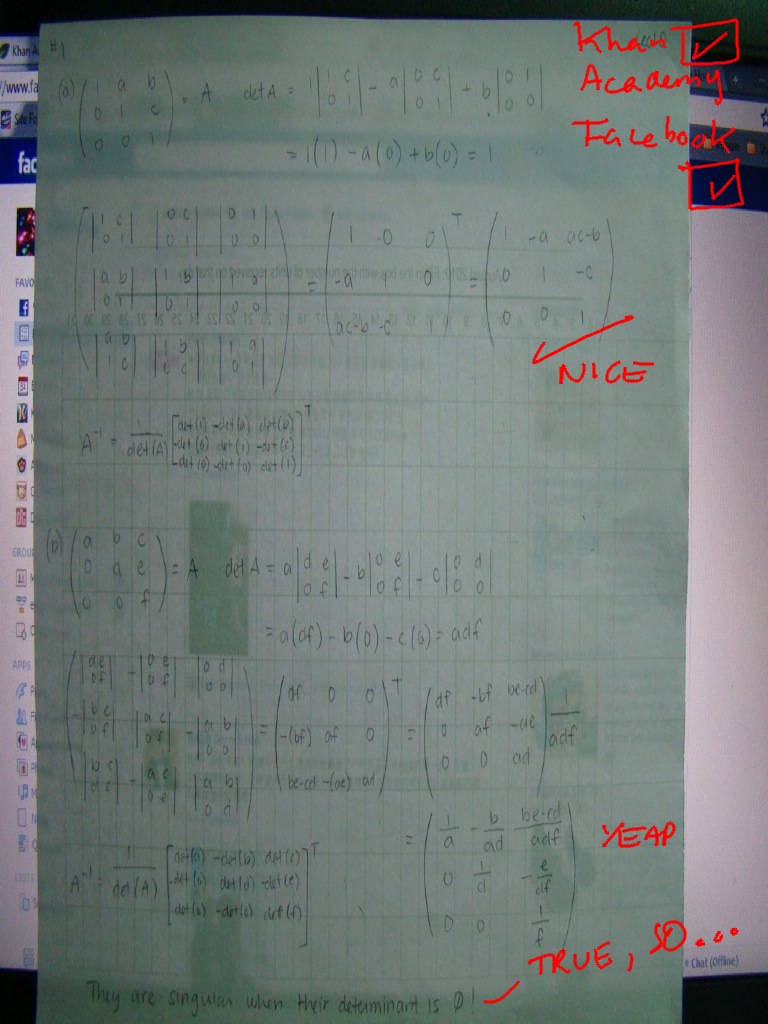 #1
Khan
Academy
Facebook
(a) ( 1 a b ; 0 1 c ; 0 0 1 ) = A det A = 1 | 1 c ; 0 1 | - a | 0 c ; 0 1 | + b | 0 1 ; 0 0 |
= 1(1) - a(0) + b(0) = 1
( | 1 c ; 0 1 | | 0 c ; 0 1 | | 0 1 ; 0 0 | ; | a b ; 0 1 | | 1 b ; 0 1 | | 1 a ; 0 0 | ; | a b ; 1 c | | 1 b ; 0 c | | 1 a ; 0 1 | ) = ( 1 0 0 ; -a 1 0 ; ac-b -c 1 )^T = ( 1 -a ac-b ; 0 1 -c ; 0 0 1 )
NICE
A^-1 = 1/det(A) [ det(1) -det(a) det(b) ; -det(0) det(1) -det(c) ; -det(0) -det(0) det(1) ]^T
(b) ( a b c ; 0 d e ; 0 0 f ) = A det A = a | d e ; 0 f | - b | 0 e ; 0 f | - c | 0 d ; 0 0 |
= a(df) - b(0) - c(0) = adf
( | d e ; 0 f | - | 0 e ; 0 f | | 0 d ; 0 0 | ; - | b c ; 0 f | | a c ; 0 f | - | a b ; 0 0 | ; | b c ; d e | - | a c ; 0 e | | a b ; 0 d | ) = ( df 0 0 ; -(bf) af 0 ; be-cd -(ae) ad )^T = ( df -bf be-cd ; 0 af -ae ; 0 0 ad ) 1/adf
= ( 1/a - b/ad be-cd/adf ; 0 1/d - e/df ; 0 0 1/f )
YEAP
A^-1 = 1/det(A) [ det(a) -det(b) det(c) ; -det(0) det(d) -det(e) ; det(0) -det(0) det(f) ]^T
TRUE, SO...
They are singular when their determinant is 0!
Khan A
/www.fa
Site Fo
fac
FAVO
GROU
APPS
LISTS
Chat (Offline)